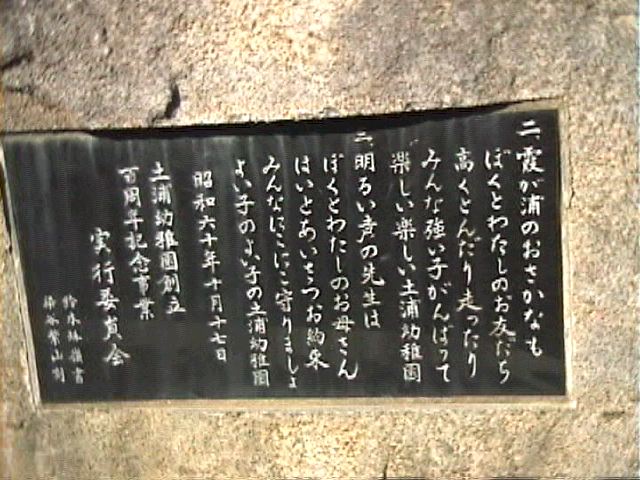 二、霞が浦のおさかなも
ぼくとわたしのお友だち
高くとんだり走ったり
みんな強い子がんばって
楽しい楽しい土浦幼稚園
明るい声の先生は
ぼくとわたしのお母さん
はいとあいさつお約束
みんなにこにこ守りましょ
よい子のよい子の土浦幼稚園
昭和六十年十月十七日
土浦幼稚園創立
百周年記念事業
実行委員会